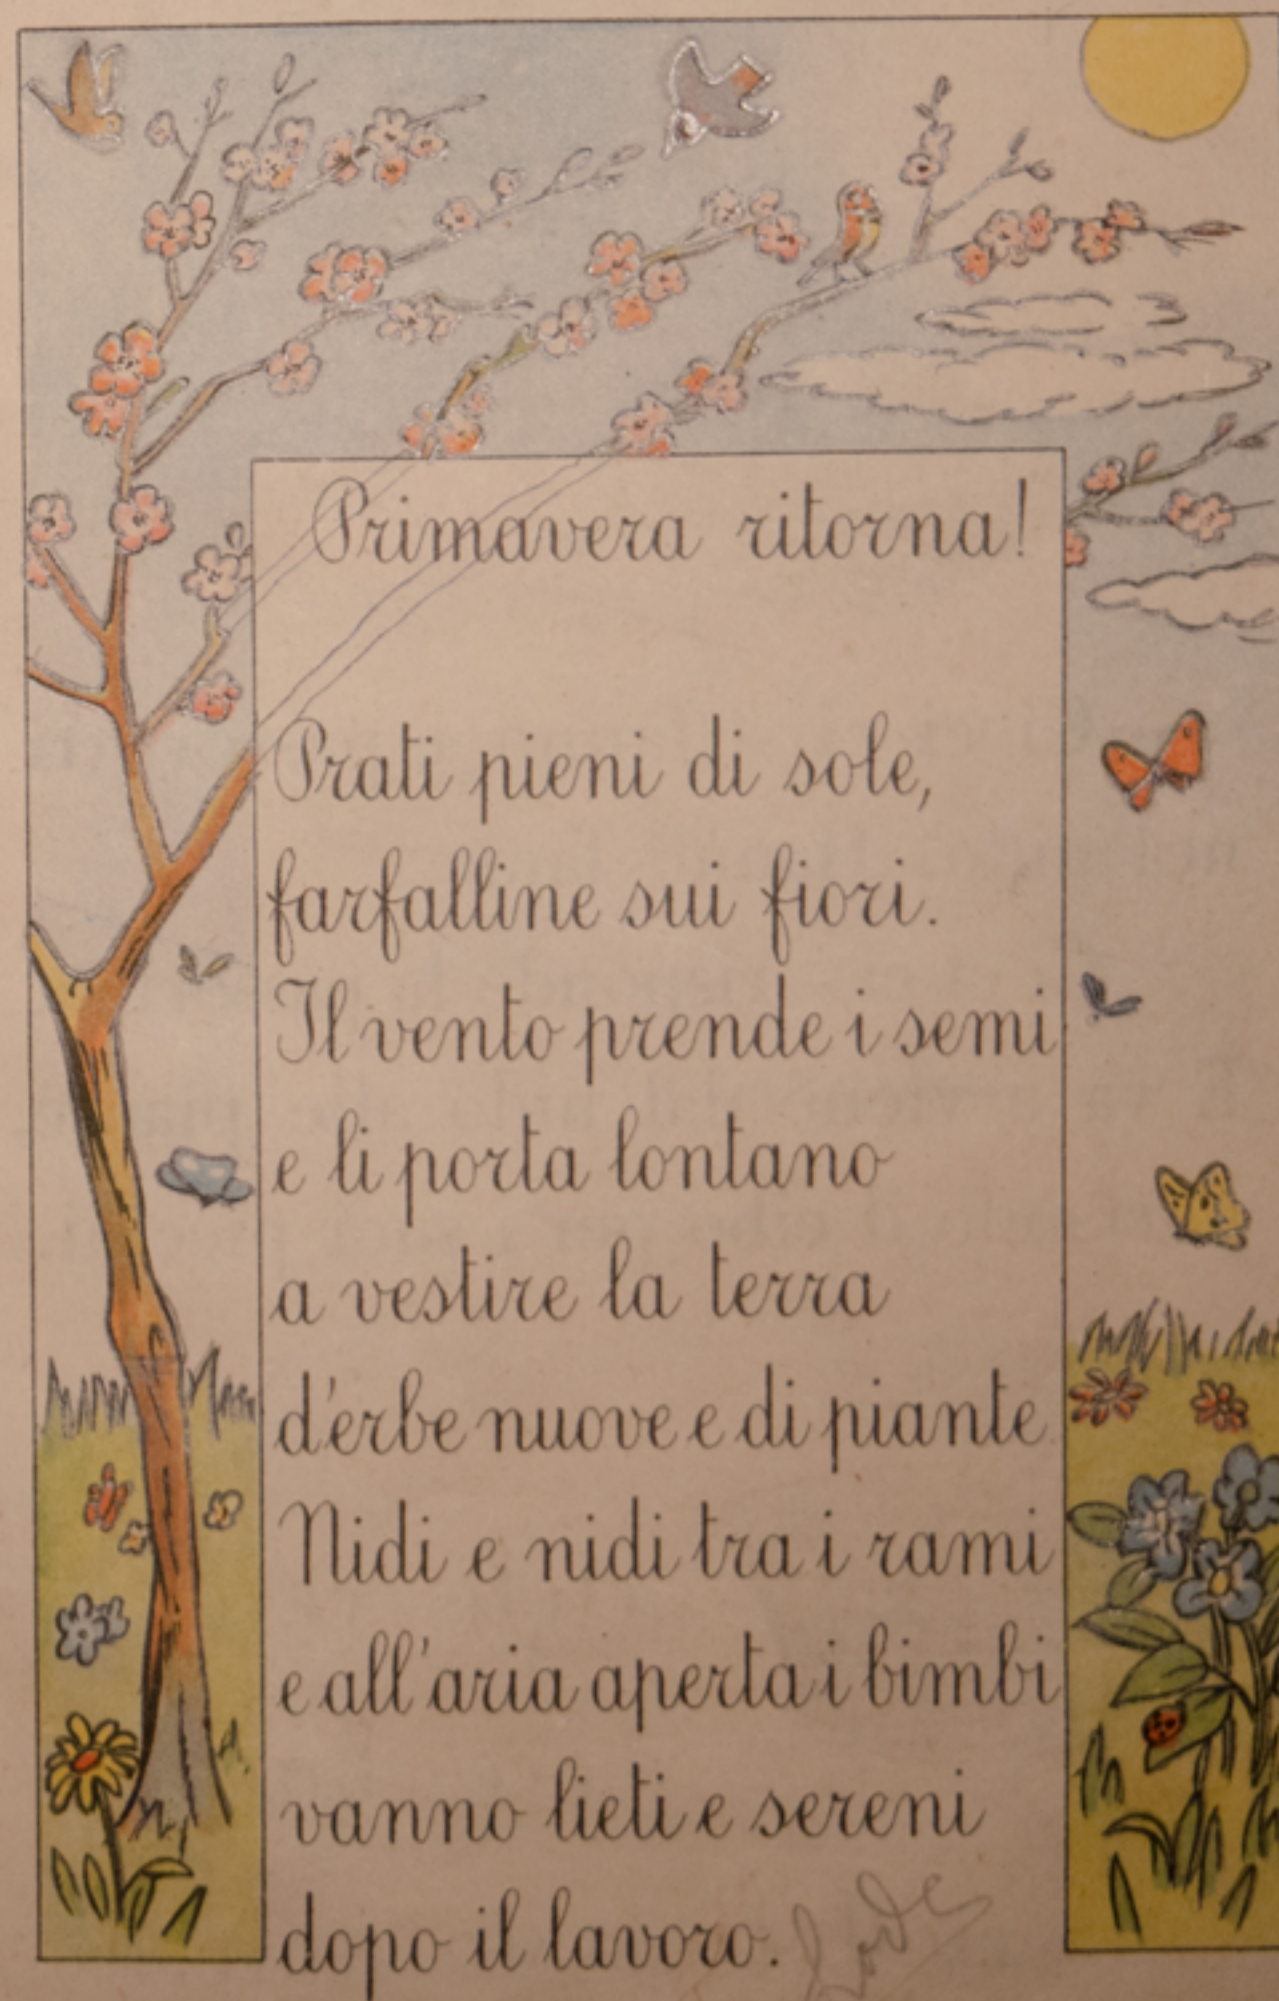 Primavera ritorna!
Prati pieni di sole,
farfalline sui fiori.
Il vento prende i semi
e li porta lontano
a vestire la terra
d'erbe nuove e di piante.
Nidi e nidi tra i rami
e all'aria aperta i bimbi
vanno lieti e sereni
dopo il lavoro.
Lode